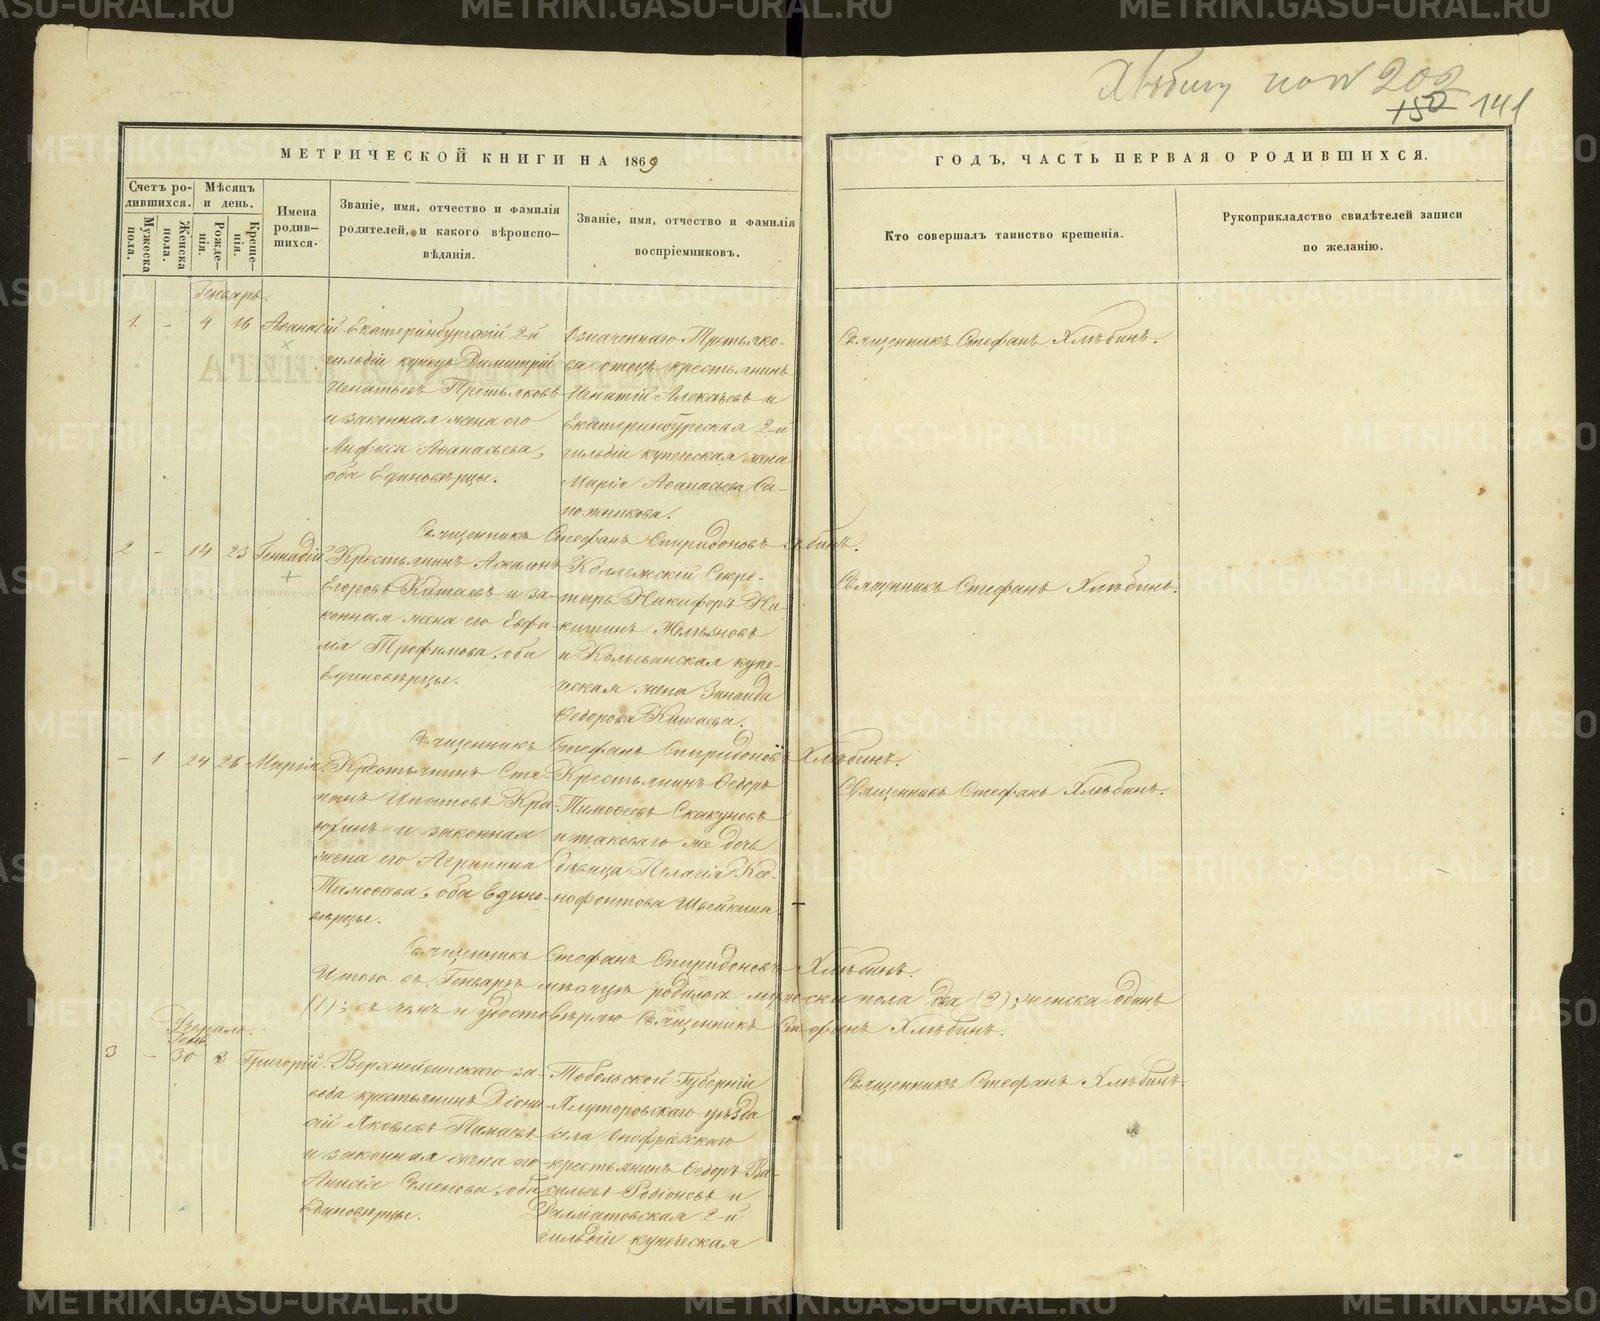 METRIKI.GASO-URAL.RU
202
150 141
МЕТРИЧЕСКОЙ КНИГИ НА 1869
ГОДЪ, ЧАСТЬ ПЕРВАЯ О РОДИВШИХСЯ.
Счетъ ро-
дившихся.
Мѣсяцъ
и день.
Мужеска
пола.
Женска
пола.
Рожде-
нія.
Креще-
нія.
Имена
родив-
шихся.
Званіе, имя, отчество и фамилія
родителей, и какого вѣроиспо-
вѣданія.
Званіе, имя, отчество и фамилія
воспріемниковъ.
Кто совершалъ таинство крещенія.
Рукоприкладство свидѣтелей записи
по желанію.
Генварь.
1. - 4 16 Аѳанасій
Екатеринбургскій 2-й
гильдіи купецъ Димитрій
Игнатьевъ Третьяковъ
и законная жена его
Аѳанасьева,
оба Единовѣрцы.
Означеннаго Третьяко-
ва отецъ крестьянинъ
Игнатій Алексѣевъ и
Екатеринбургская 2-й
гильдіи купеческая жена
Марія Аѳанасьева Са-
пожникова.
Священникъ Стефанъ Хлѣбинъ.
Священникъ Стефанъ Спиридоновъ Хлѣбинъ.
2 - 14 23 Геннадій
Крестьянинъ
Егоровъ Китаевъ и за-
конная жена его Евфа-
лія Трофимова, оба
Единовѣрцы.
Коллежскій Секре-
тарь Никифоръ Ни-
китинъ
и Колыванская купе-
ческая жена Зинаида
Ѳедорова Китаева.
Священникъ Стефанъ Хлѣбинъ.
Священникъ Стефанъ Спиридоновъ Хлѣбинъ.
- 1 24 26 Марія
Крестьянинъ Сте-
панъ Ипатовъ Кра-
юхинъ и законная
жена его Агрипина
Тимоѳеева, оба Едино-
вѣрцы.
Крестьянинъ Ѳедоръ
Тимоѳеевъ Скакуновъ
и таковаго же дочь
дѣвица Пелагія Ксе-
нофонтова Швейкина.
Священникъ Стефанъ Хлѣбинъ.
Священникъ Стефанъ Спиридоновъ Хлѣбинъ.
Итого въ Генварѣ мѣсяцѣ родилось мужеска пола два (2), женска одинъ
(1); въ чемъ и удостовѣряю Священникъ Стефанъ Хлѣбинъ.
Февраль.
Генв.
3 - 30 3 Григорій.
Верхнейвинскаго за-
вода крестьянинъ Діони-
сій Яковлевъ
и законная жена его
Анисія Семенова, оба
Единовѣрцы.
Тобольской Губерніи
Ялуторовскаго уѣзда
села
крестьянинъ Ѳедоръ Ва-
сильевъ Родіоновъ и
Далматовская 2-й
гильдіи купеческая
Священникъ Стефанъ Хлѣбинъ.